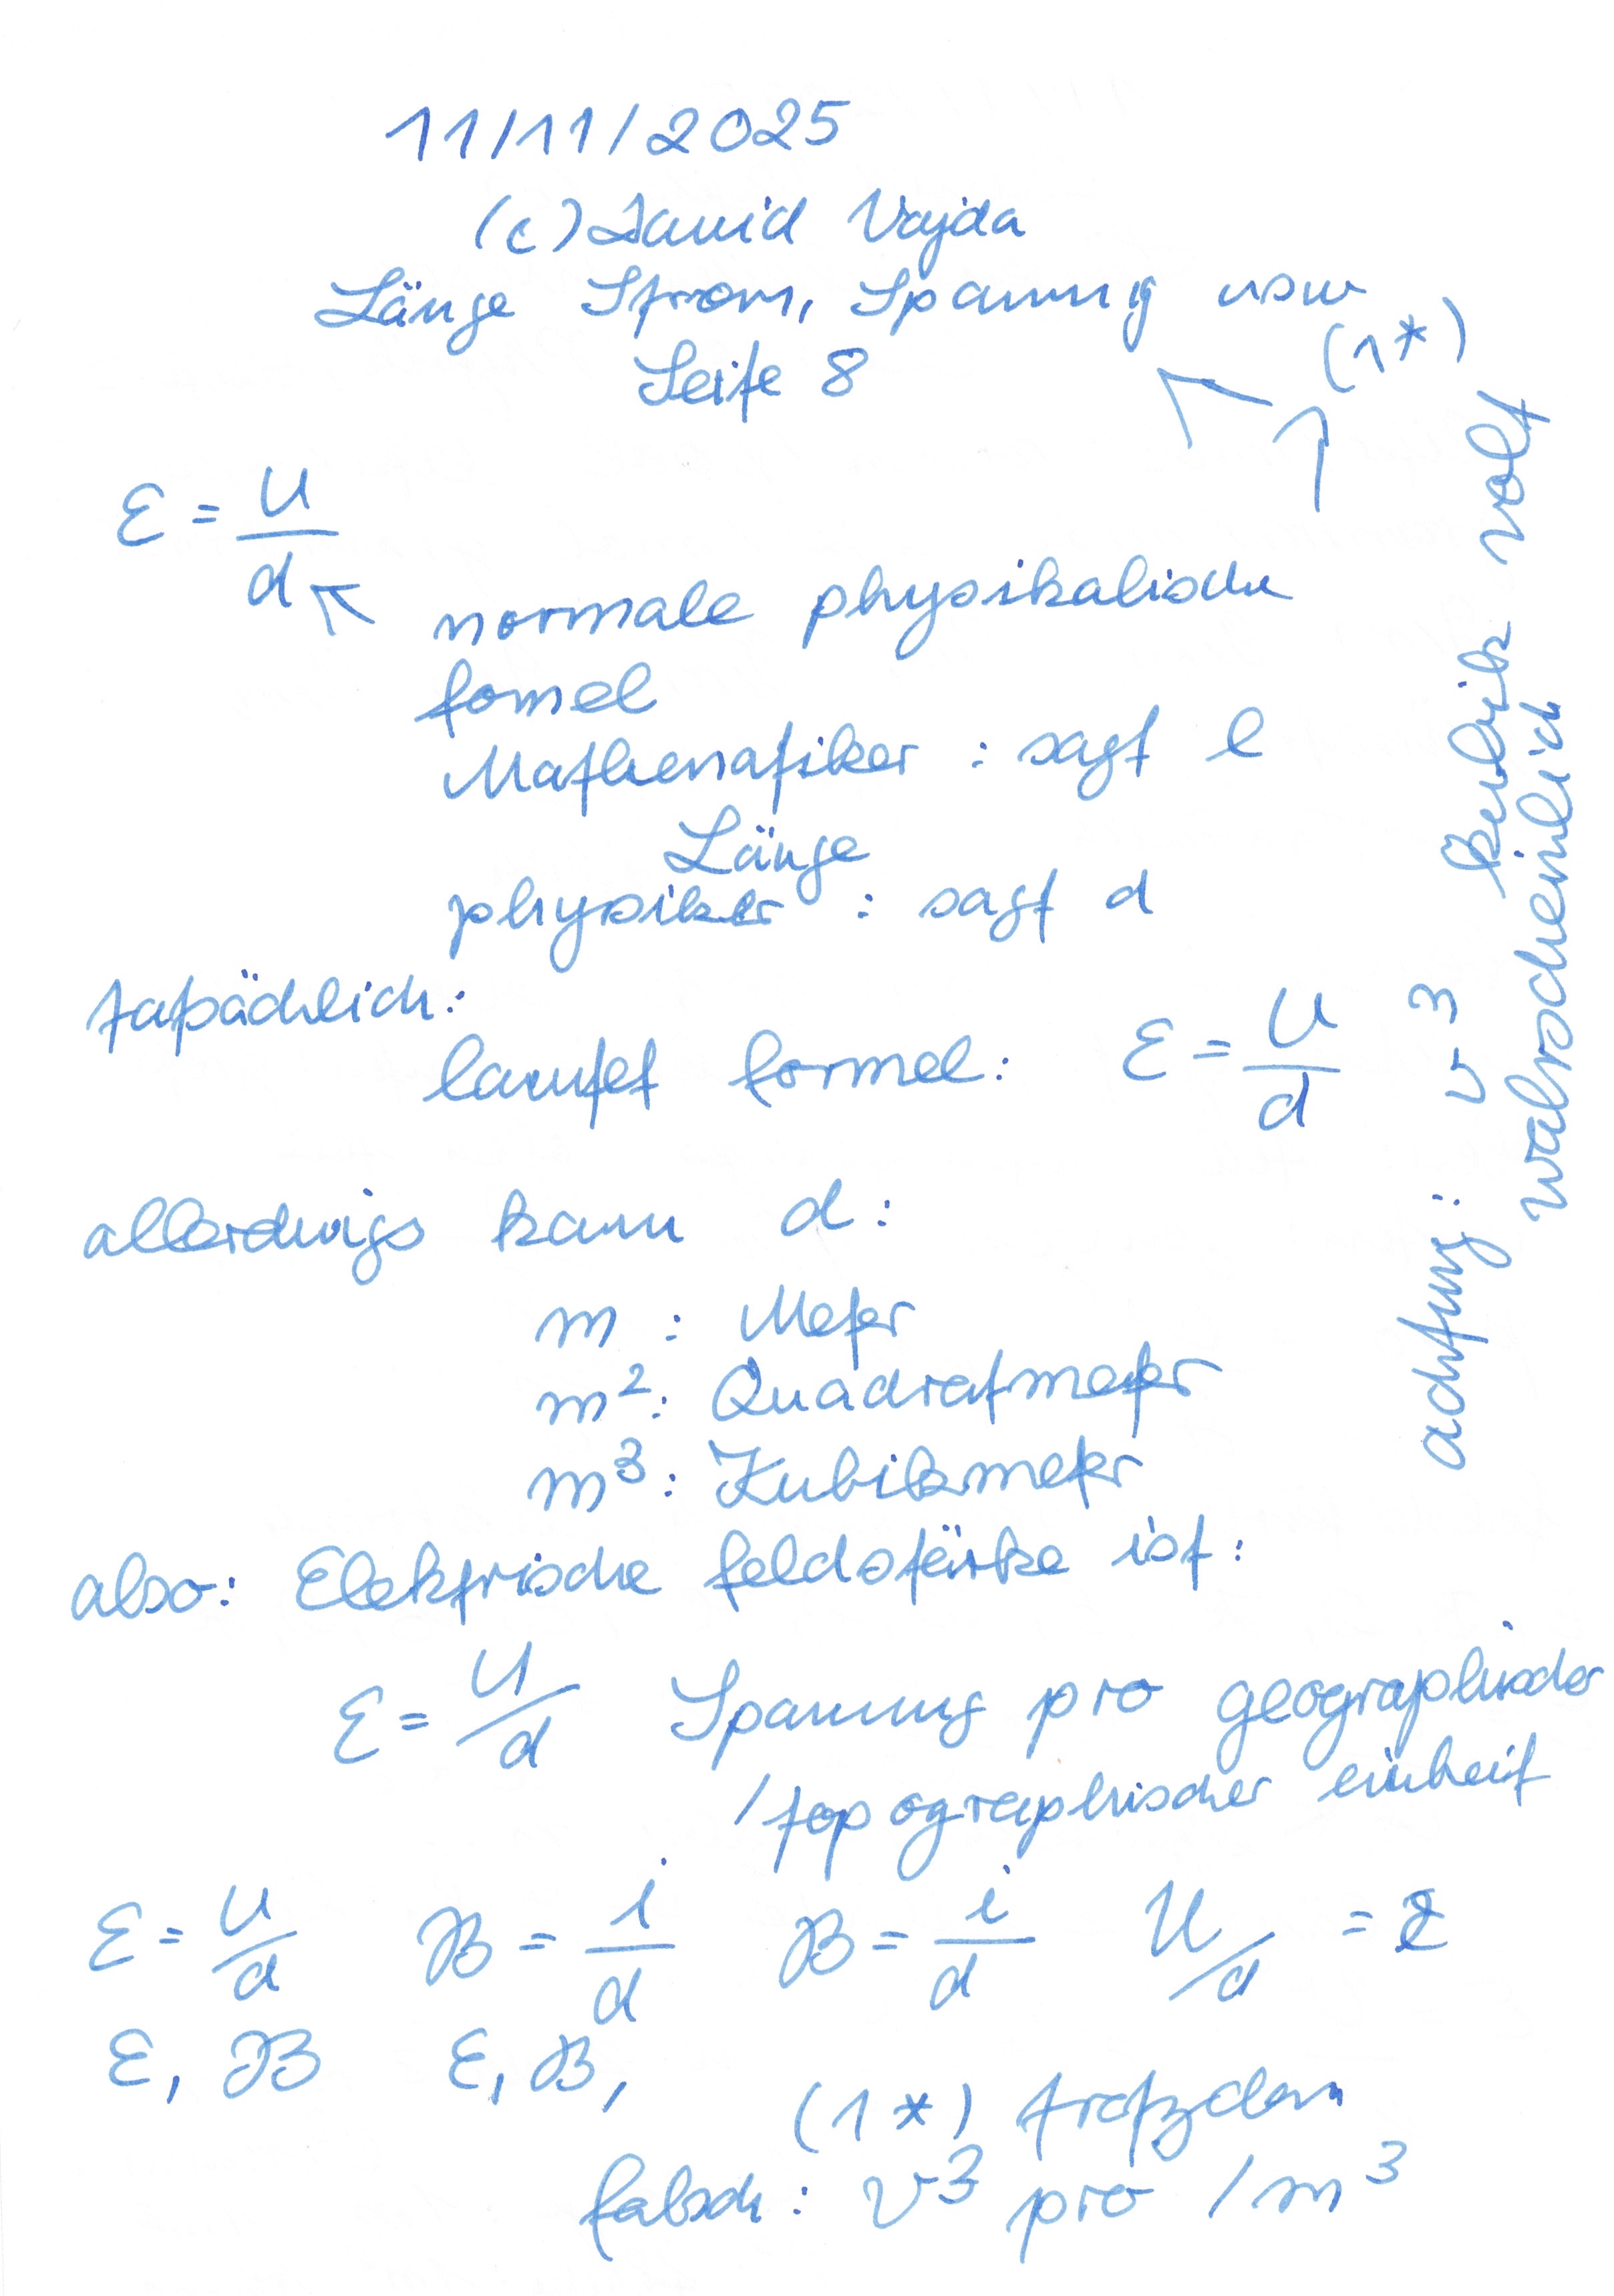 11/11/2025
(c) David Vajda
Länge Strom, Spannung usw
(1*)
Seite 8
E = U/d
normale physikalische
fomel
Mathematiker : sagt l
Länge
physiker : sagt d
tatsächlich:
lautet formel: E = U/d
allerdings kann d:
m : Meter
m²: Quadratmeter
m³: Kubikmeter
also: Elektrische feldstärke ist:
E = U/d Spannung pro geographischer
/topographischer einheit
E = U/d B = i/d B = i/d U/d =
E, B E, B,
(1*) trotzdem
falsch: v³ pro /m³
achtung: v³ kubik volt
wahrscheinlich